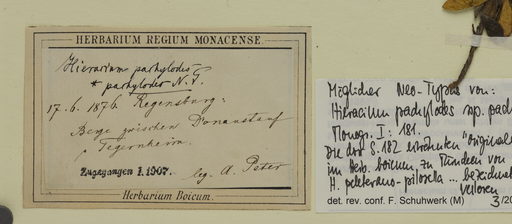 HERBARIUM REGIUM MONACENSE.
Hieracium pachylodes
* pachylodes N. P.
17. 6. 1876. Regensburg:
Berge zwischen Donaustauf
u. Tegernheim.
Zugegangen 1.1907. leg. A. Peter
Herbarium Boicum.
Möglicher Neo-Typus von:
Hieracium pachylodes ssp. pach
Monogr. I: 181.
Die dor S. 182 erwähnten "Originale
im Herb. boicum. zu München von
H. peleterano-pilosella ... bezeichnet
verloren
det. rev. conf. F. Schuhwerk (M) 3/20